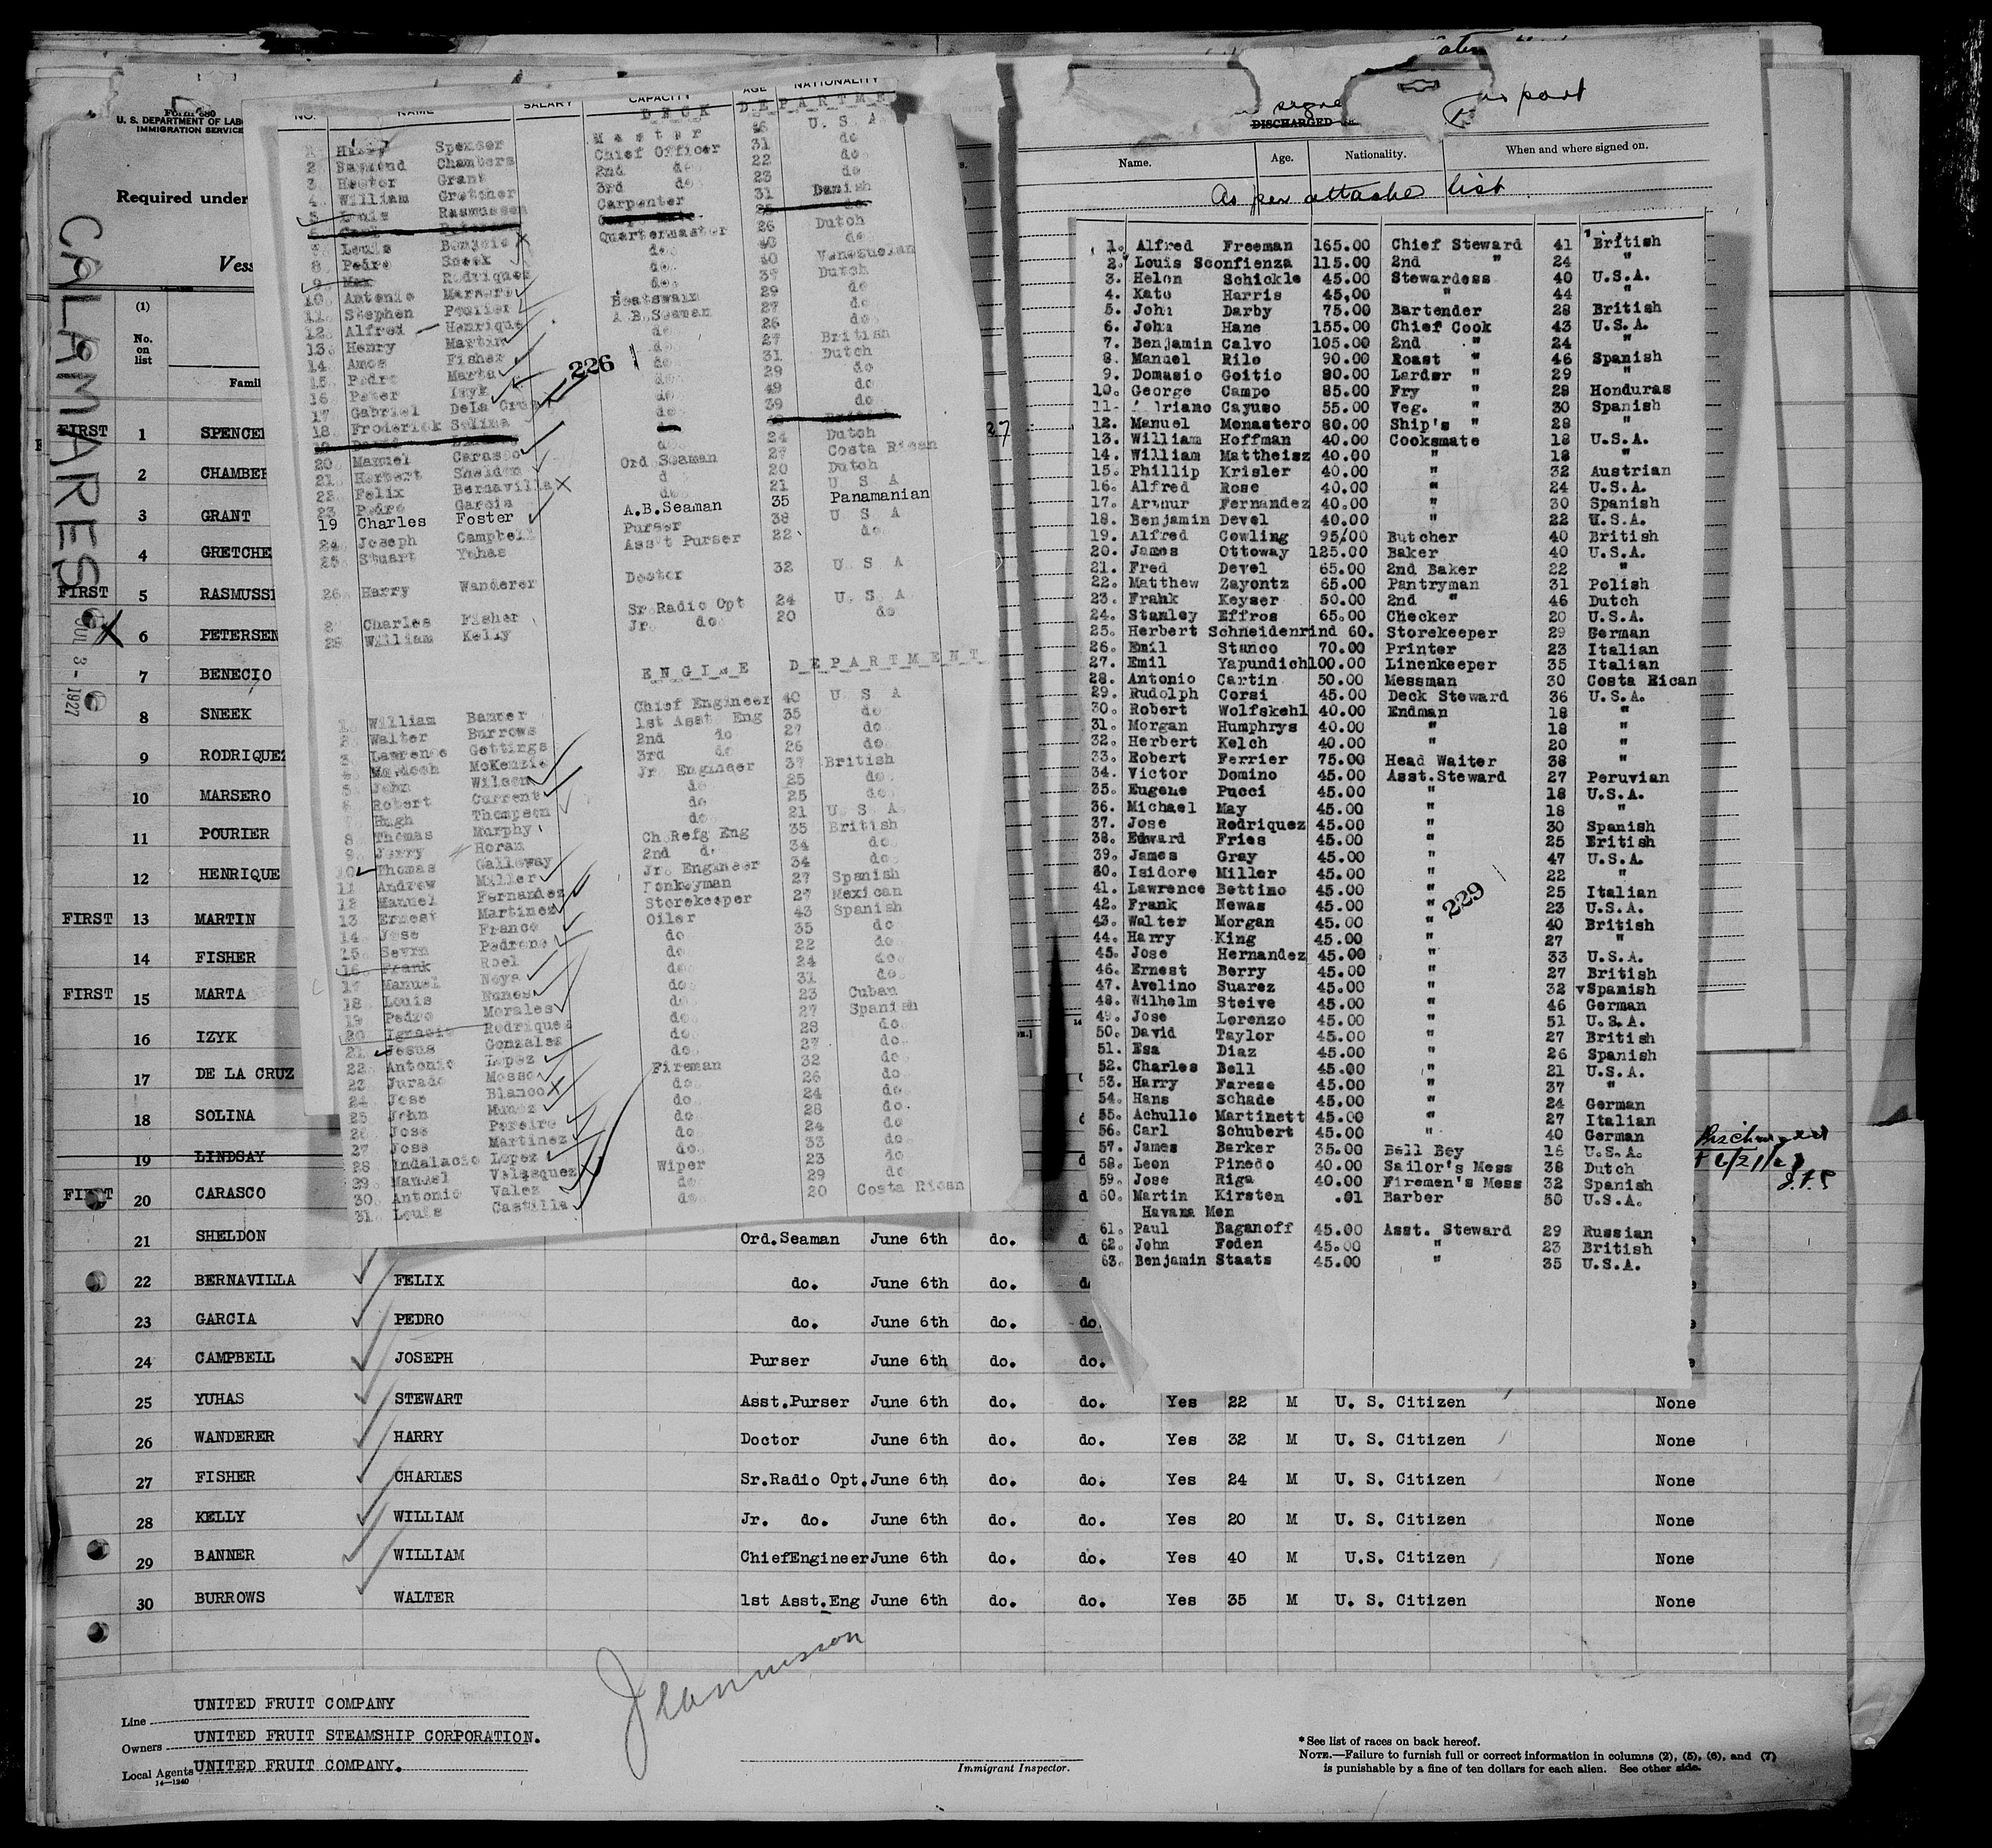 Form 680
U. S. DEPARTMENT OF LAB
IMMIGRATION SERVICE
Required under
Vess
CALAMARES
JUL 3 - 1927
(1)
No. on list
Famil
FIRST 1 SPENCER
2 CHAMBER
3 GRANT
4 GRETCHE
FIRST 5 RASMUSSE
X 6 PETERSEN
7 BENECIO
8 SNEEK
9 RODRIQUEZ
10 MARSERO
11 POURIER
12 HENRIQUE
FIRST 13 MARTIN
14 FISHER
FIRST 15 MARTA
16 IZYK
17 DE LA CRUZ
18 SOLINA
19 LINDSAY
FIRST 20 CARASCO
21 SHELDON Ord.Seaman June 6th do.
22 BERNAVILLA FELIX do. June 6th do.
23 GARCIA PEDRO do. June 6th do. do.
24 CAMPBELL JOSEPH Purser June 6th do. do.
25 YUHAS STEWART Asst.Purser June 6th do. do. Yes 22 M U. S. Citizen None
26 WANDERER HARRY Doctor June 6th do. do. Yes 32 M U. S. Citizen None
27 FISHER CHARLES Sr.Radio Opt. June 6th do. do. Yes 24 M U. S. Citizen None
28 KELLY WILLIAM Jr. do. June 6th do. do. Yes 20 M U. S. Citizen None
29 BANNER WILLIAM ChiefEngineer June 6th do. do. Yes 40 M U.S. Citizen None
30 BURROWS WALTER 1st Asst.Eng June 6th do. do. Yes 35 M U. S. Citizen None
Line UNITED FRUIT COMPANY
Owners UNITED FRUIT STEAMSHIP CORPORATION.
Local Agents UNITED FRUIT COMPANY.
14—1240
Immigrant Inspector.
* See list of races on back hereof.
NOTE.—Failure to furnish full or correct information in columns (2), (5), (6), and (7)
is punishable by a fine of ten dollars for each alien. See other side.
NO. NAME SALARY CAPACITY AGE NATIONALITY
DECK DEPARTME
1. Spencer Master 46 U. S. A
2. Raymond Chambers Chief Officer 31 do
3. Hector Grant 2nd do. 22 do
4. William Gretcher 3rd do. 23 do
5. Louis Rasmussen Carpenter 31 Danish
6. Petersen
7. Louis Quartermaster 26 Dutch
8. Pedro Sneek do. 40 do
9. Max Rodriquez do. 40 Venezuelan
10. Antonio Marsero do. 37 Dutch
11. Stephen Pourier Boatswain 29 do
12. Alfred Henrique A.B.Seaman 27 do
13. Henry Martin do 26 do
14. Amos Fisher do 27 British
15. Pedro Marta do. 31 Dutch
16. Peter Izyk do 29 do
17. Gabriel DeLa Cruz do. 49 do
18. Frederick Solina do 39 do
20. Manuel Carasco 24 Dutch
21. Herbert Sheldon Ord Seaman 27 Costa Rican
22. Felix Bernavilla 20 Dutch
23 Pedro Garcia do. 21 U S A
19 Charles Foster A.B.Seaman 35 Panamanian
24. Joseph Campbell Purser 38 U S A
25. Stuart Yuhas Ass't Purser 22 do.
26. Harry Wanderer Doctor 32 U S A
2 Charles Fisher Sr Radio Opt 24 U. S A
28 William Kelly Jr. do. 20 do
226
ENGINE DEPARTMENT
1. William Banner Chief Engineer 40 U S A
2. Walter Burrows 1st Asst Eng 35 do
3. Lawrence Gettings 2nd do 27 do
4. Murdoch McKenzie 3rd do 26 do
5. John Wilson Jr Engineer 37 British
6. Robert Current do 25 do
7. Hugh Thompson do 25 do
8 Thomas Murphy do. 21 U S A
9. Jerry Horan Ch Refg Eng 35 British
10 Thomas Galloway 2nd do 34 do
11 Andrew Miller Jr. Engineer 34 do
12 Manuel Fernandez Donkeyman 27 Spanish
13 Ernest Martinez Storekeeper 27 Mexican
14 Jose Franco Oiler 43 Spanish
15. Pedrone do 35 do
16. Frank Roel do. 22 do
17 Manuel Noya do. 24 do
18 Louis Nunes do. 31 do.
19 Pedro Morales do. 23 Cuban
20 Ignacio Rodriquez do. 27 Spanish
21 Jesus Gonzalez do. 28 do.
22 Antonio Lopez do. 27 do.
23 Jurado Mosso Fireman 32 do
24 Jose Blanco do. 26 do
25 John Munoz do. 24 do
26 Jose Pereiro do. 28 do.
27 Jose Martinez do. 24 do
28. Indalacio Lopez do. 33 do
29. Manuel Velasquez Wiper 23 do
30. Antonio Valez do 29 do
31. Louis Castilla do. 20 Costa Rican
DISCHARGED
Name. Age. Nationality. When and where signed on.
As per attache list
1. Alfred Freeman 165.00 Chief Steward 41 British
2. Louis Sconfienza 115.00 2nd " 24 "
3. Helen Schickle 45.00 Stewardess 40 U.S.A.
4. Kate Harris 45.00 " 44 "
5. John Darby 75.00 Bartender 28 British
6. John Hane 155.00 Chief Cook 43 U.S.A.
7. Benjamin Calvo 105.00 2nd " 24 "
8. Manuel Rilo 90.00 Roast " 46 Spanish
9. Domasio Goitio 80.00 Larder " 29 "
10. George Campo 85.00 Fry " 28 Honduras
11. driano Cayuso 55.00 Veg. " 30 Spanish
12. Manuel Monastero 80.00 Ship's " 28 "
13. William Hoffman 40.00 Cooksmate 18 U.S.A.
14. William Mattheisz 40.00 " 18 "
15. Phillip Krisler 40.00 " 32 Austrian
16. Alfred Rose 40.00 " 24 U.S.A.
17. Arthur Fernandez 40.00 " 30 Spanish
18. Benjamin Devel 40.00 " 22 U.S.A.
19. Alfred Cowling 95/00 Butcher 40 British
20. James Ottoway 125.00 Baker 40 U.S.A.
21. Fred Devel 65.00 2nd Baker 22 "
22. Matthew Zayontz 65.00 Pantryman 31 Polish
23. Frank Keyser 50.00 2nd " 46 Dutch
24. Stanley Effros 65.00 Checker 20 U.S.A.
25. Herbert Schneidenrind 60. Storekeeper 29 German
26. Emil Stanco 70.00 Printer 23 Italian
27. Emil Yapundich 100.00 Linenkeeper 35 Italian
28. Antonio Cartin 50.00 Messman 30 Costa Rican
29. Rudolph Corsi 45.00 Deck Steward 36 U.S.A.
30. Robert Wolfskehl 40.00 Endman 18 "
31. Morgan Humphrys 40.00 " 18 "
32. Herbert Kelch 40.00 " 20 "
33. Robert Ferrier 75.00 Head Waiter 38 "
34. Victor Domino 45.00 Asst.Steward 27 Peruvian
35. Eugene Pucci 45.00 " 18 U.S.A.
36. Michael May 45.00 " 18 "
37. Jose Rodriquez 45.00 " 30 Spanish
38. Edward Fries 45.00 " 25 British
39. James Gray 45.00 " 47 U.S.A.
80. Isidore Miller 45.00 " 22 "
41. Lawrence Bettino 45.00 " 25 Italian
42. Frank Newas 45.00 " 23 U.S.A.
43. Walter Morgan 45.00 " 40 British
44. Harry King 45.00 " 27 "
45. Jose Hernandez 45.00 " 33 U.S.A.
46. Ernest Berry 45.00 " 27 British
47. Avelino Suarez 45.00 " 32 Spanish
48. Wilhelm Steive 45.00 " 46 German
49. Jose Lorenzo 45.00 " 51 U.S.A.
50. David Taylor 45.00 " 27 British
51. Esa Diaz 45.00 " 26 Spanish
52. Charles Bell 45.00 " 21 U.S.A.
53. Harry Farese 45.00 " 37 "
54. Hans Schade 45.00 " 24 German
55. Achulle Martinett 45.00 " 27 Italian
56. Carl Schubert 45.00 " 40 German
57. James Barker 35.00 Bell Boy 16 U.S.A.
58. Leon Pinedo 40.00 Sailor's Mess 38 Dutch
59. Jose Riga 40.00 Firemen's Mess 32 Spanish
60. Martin Kirsten .01 Barber 50 U.S.A.
Havana Men
61. Paul Baganoff 45.00 Asst. Steward 29 Russian
62. John Foden 45.00 " 23 British
63. Benjamin Staats 45.00 " 35 U.S.A.
229
Discharged
6/21/27